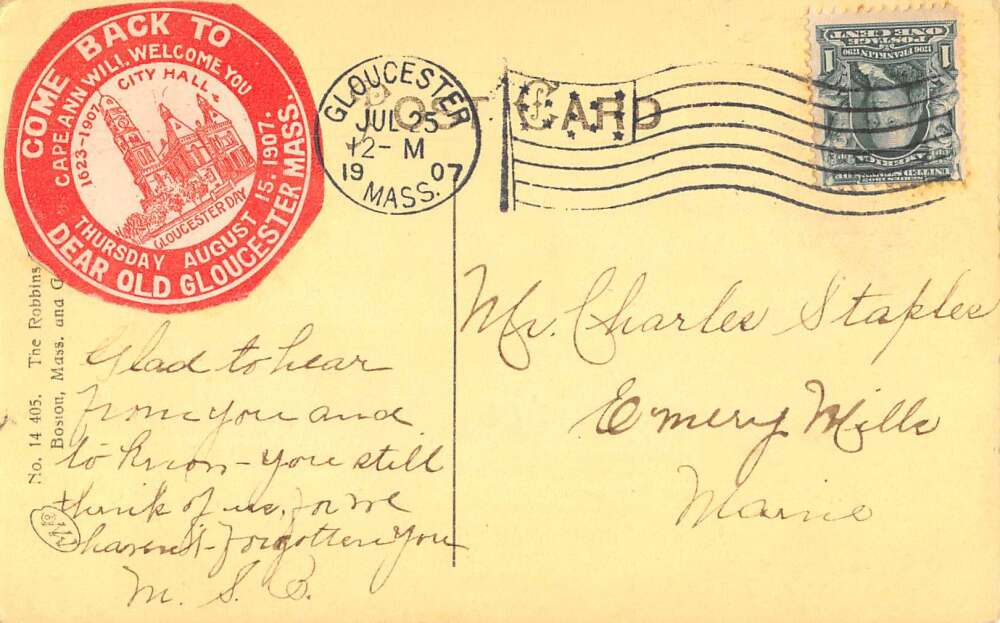 COME BACK TO
DEAR OLD GLOUCESTER MASS.
CAPE ANN WILL WELCOME YOU
THURSDAY AUGUST 15, 1907.
CITY HALL
1623-1907
GLOUCESTER DAY
GLOUCESTER
JUL 25
12-M
19 07
MASS.
POST CARD
POSTAGE
ONE CENT
1706 FRANKLIN 1790
1 1
SERIES 1902
UNITED STATES OF
AMERICA
No. 14 405. The Robbins
Boston, Mass. and G
Glad to hear
from you and
to know - you still
think of us, for we
haven't - forgotten you
M. S. B.
Mr. Charles Staples
Emery Mills
Maine